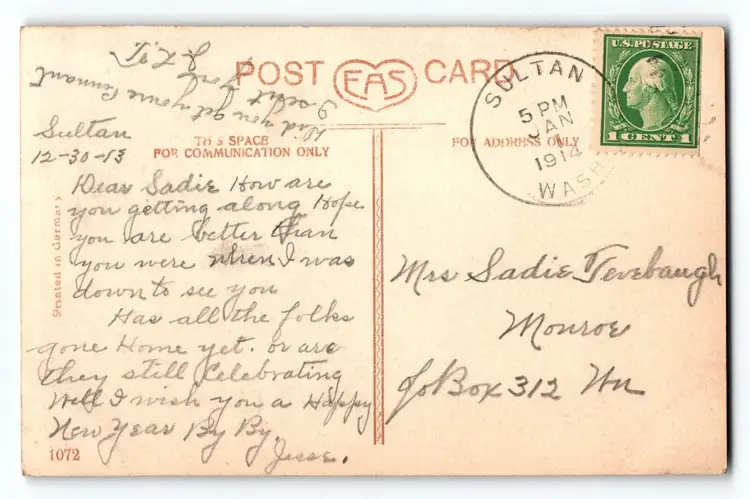 Did you get youre Pennant
I sent
for
J. L. T.
POST EAS CARD
U.S. POSTAGE
1 CENT 1
SULTAN
5 PM
JAN
1914
WASH
Sultan
12-30-13
THIS SPACE
FOR COMMUNICATION ONLY
FOR ADDRESS ONLY
Dear Sadie How are
you getting along Hope
you are better than
you were when I was
down to see you
Has all the folks
gone Home yet. or are
they still Celebrating
Well I wish you a Happy
New Year By By.
Jesse.
Printed in Germany
1072
Mrs Sadie Tevebaugh
Monroe
Box 312 Wn